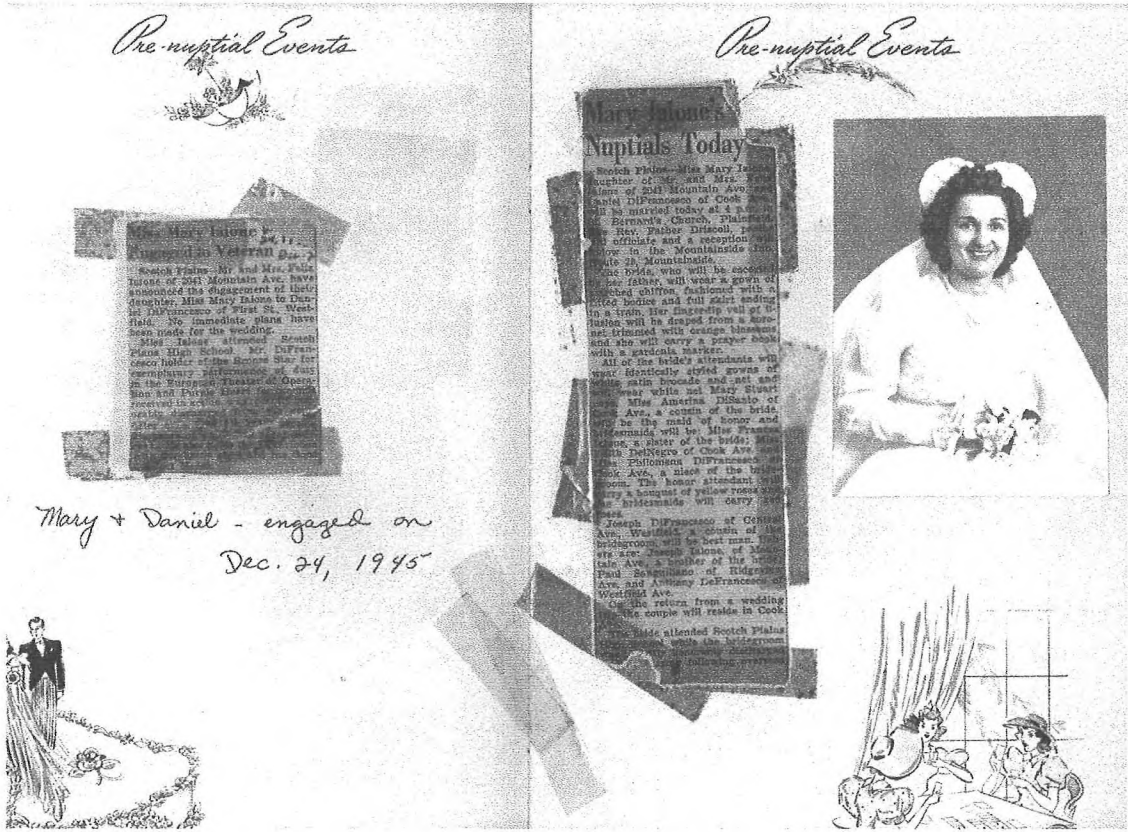 Pre-nuptial Events
Miss Mary Ialone
Engaged to Veteran
Scotch Plains—Mr and Mrs. Felix
Ialone of 2041 Mountain Ave. have
announced the engagement of their
daughter, Miss Mary Ialone to Dan-
iel DiFrancesco of First St., West-
field. No immediate plans have
been made for the wedding.
Miss Ialone attended Scotch
Plains High School. Mr. DiFran-
cesco holder of the Bronze Star for
exemplary performance of duty
in the European Theater of Opera-
tion and Purple Heart for
received in
Mary + Daniel - engaged on
Dec. 24, 1945
Pre-nuptial Events
Mary Ialone's
Nuptials Today
Scotch Plains—Miss Mary
daughter of Mr. and Mrs.
Ialone of 2041 Mountain Ave. and
Daniel DiFrancesco of Cook
will be married today at 4
Bernard's Church, Plainfield.
Rev. Father Driscoll,
officiate and a reception will
in the Mountainside Inn,
Mountainside.
The bride, who will be escorted
by her father, will wear a gown of
chiffon, fashioned with a
fitted bodice and full skirt ending
in a train. Her fingertip veil of il-
lusion will be draped from a coro-
net trimmed with orange blossoms
and she will carry a prayer book
with a gardenia marker.
All of the bride's attendants will
wear identically styled gowns of
white satin brocade and net and
will wear white net Mary Stuart
Miss Amerina DiSanto of
Cook Ave., a cousin of the bride,
will be the maid of honor and
bridesmaids will be: Miss
a sister of the bride; Miss
DelNegro of Cook Ave.
Philomena DiFrancesco of
Cook Ave., a niece of the bride-
groom. The honor attendant will
carry a bouquet of yellow roses and
bridesmaids will carry
Joseph DiFrancesco of Central
Ave., Westfield, a cousin of the
bridegroom, will be best man. Ush-
ers are: Joseph Ialone, of Moun-
tain Ave., a brother of the bride;
Paul of
Ave. and Anthony DeFrancesco of
Westfield Ave.
On the return from a wedding
the couple will reside in Cook
The bride attended Scotch Plains
while the bridegroom
honorably discharged
following overseas